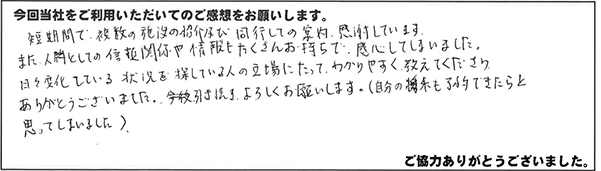 今回当社をご利用いただいてのご感想をお願いします。
短期間で、複数の施設の紹介及び同行しての案内、感謝しています。
また、人間としての信頼関係や情報もたくさんお持ちで、感心してしまいました。
日々変化している状況を探している人の立場にたって、わかりやすく教えてくださり
ありがとうございました。今後引き続きよろしくお願いします。(自分の
できたらと
思ってしまいました)
ご協力ありがとうございました。